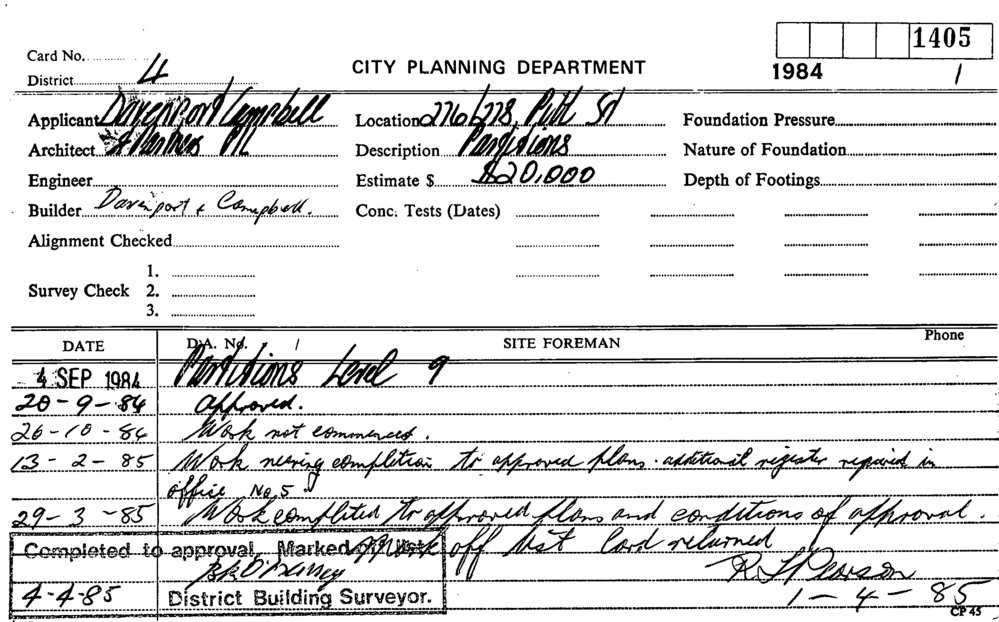 1405
Card No.
District 4
CITY PLANNING DEPARTMENT
1984 1
Applicant Davenport Campbell
Location 276/278, Pitt St
Foundation Pressure
Architect & Partners P/L
Description Partitions
Nature of Foundation
Engineer
Estimate $ $20,000
Depth of Footings
Builder Davenport & Campbell.
Conc. Tests (Dates)
Alignment Checked
1.
Survey Check 2.
3.
DATE D.A. No. / SITE FOREMAN Phone
4 SEP 1984 Partitions Level 9
20-9-84 Approved.
26-10-84 Work not commenced.
13-2-85 Work nearing completion to approved plans. additional register required in
office No. 5
29-3-85 Work completed to approved plans and conditions of approval.
Mark off list Card returned
Completed to approval, Marked off List
R L Pearson
4-4-85 District Building Surveyor.
1-4-85
CP 45